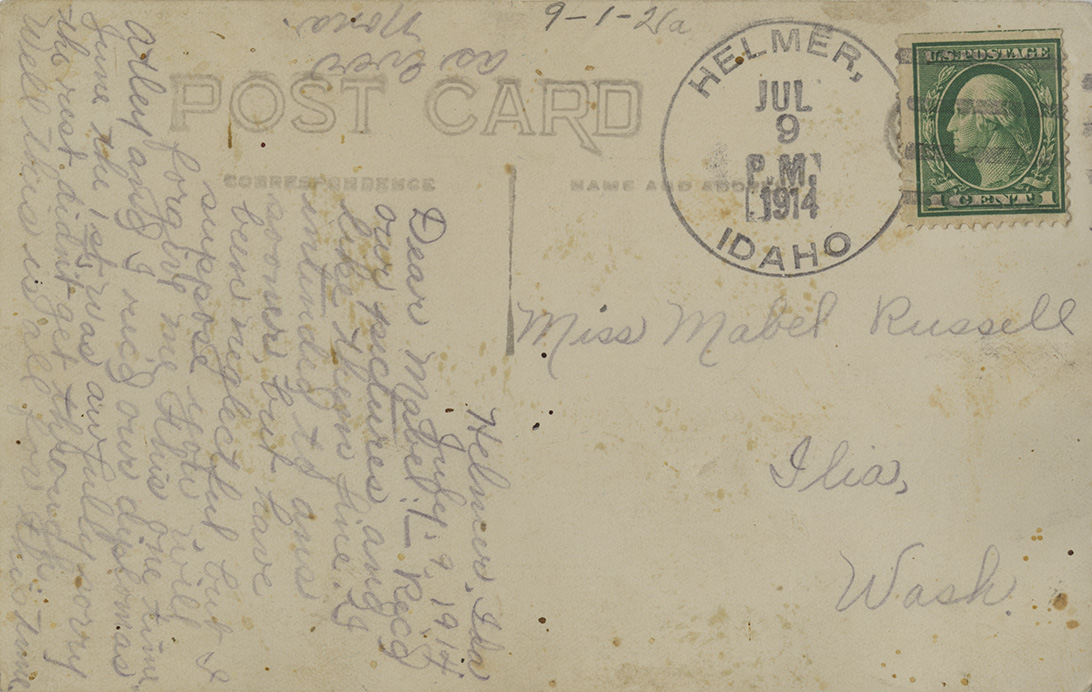 9-1-21a
POST CARD
CORRESPONDENCE
NAME AND ADDRESS
HELMER,
JUL
9
P.M.
1914
IDAHO
U.S. POSTAGE
1 CENT 1
Miss Mabel Russell
Ilia,
Wash.
Helmer, Ida
July, 9, 1914.
Dear Mabel:— Recd
our pictures and
like them fine. Is
intinded to ans
sooner, but have
been neglectful but I
suppose you will
forgive me this one time.
Atley and I rec'd our diplomas
June the 1st, was awfully sorry
the rest didnt get through.
Well this is all for this time
as ever
Nona.